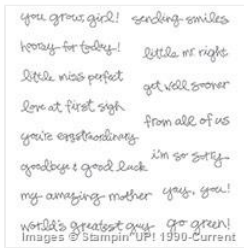 you grow, girl!
hooray for today!
little miss perfect
love at first sigh
you're eggstraordinary
goodbye & good luck
my amazing mother
world's greatest guy
sending smiles
little mr. right
get well sooner
from all of us
i'm so sorry
yay, you!
go green!
Images © Stampin' UP! 1990-Current